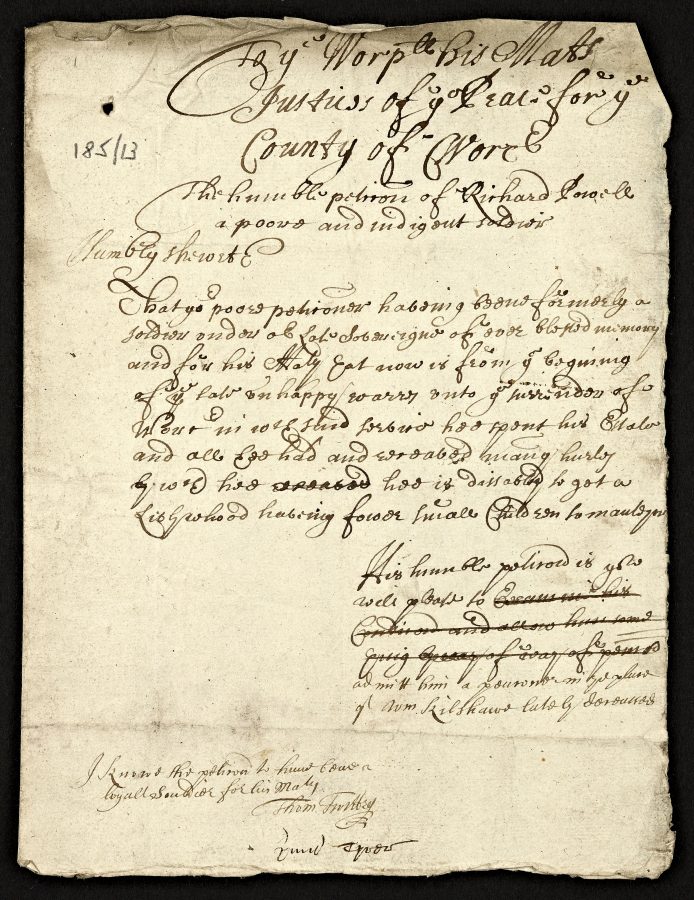 To ye Worpll his Mats
Justices of ye Peace for ye
County of Worc
185/13
The humble peticon of Richard Powell
a poore and indigent soldier
Humbly sheweth
That yor poore peticoner haveing beene formerly a
soldier under or late Sovereigne of ever blessed memory
and for his Maty yat now is from ye begining
of ye late unhappy warrs unto ye surrender of
Worc in wch said service hee spent his Estate
and all hee had and receaved many hurts
by wch hee receaved hee is dissabled to get a
Livlyehood haveing fower small Children to mainteyne
His humble peticon is you
will please to Examine his
Condicon and allow him some
of pencon
admitt him a pencioner in the place
of Wm Kilshawe lately deceased
I knowe the peticon to have beene a
loyall Souldier for his Maty
Thom